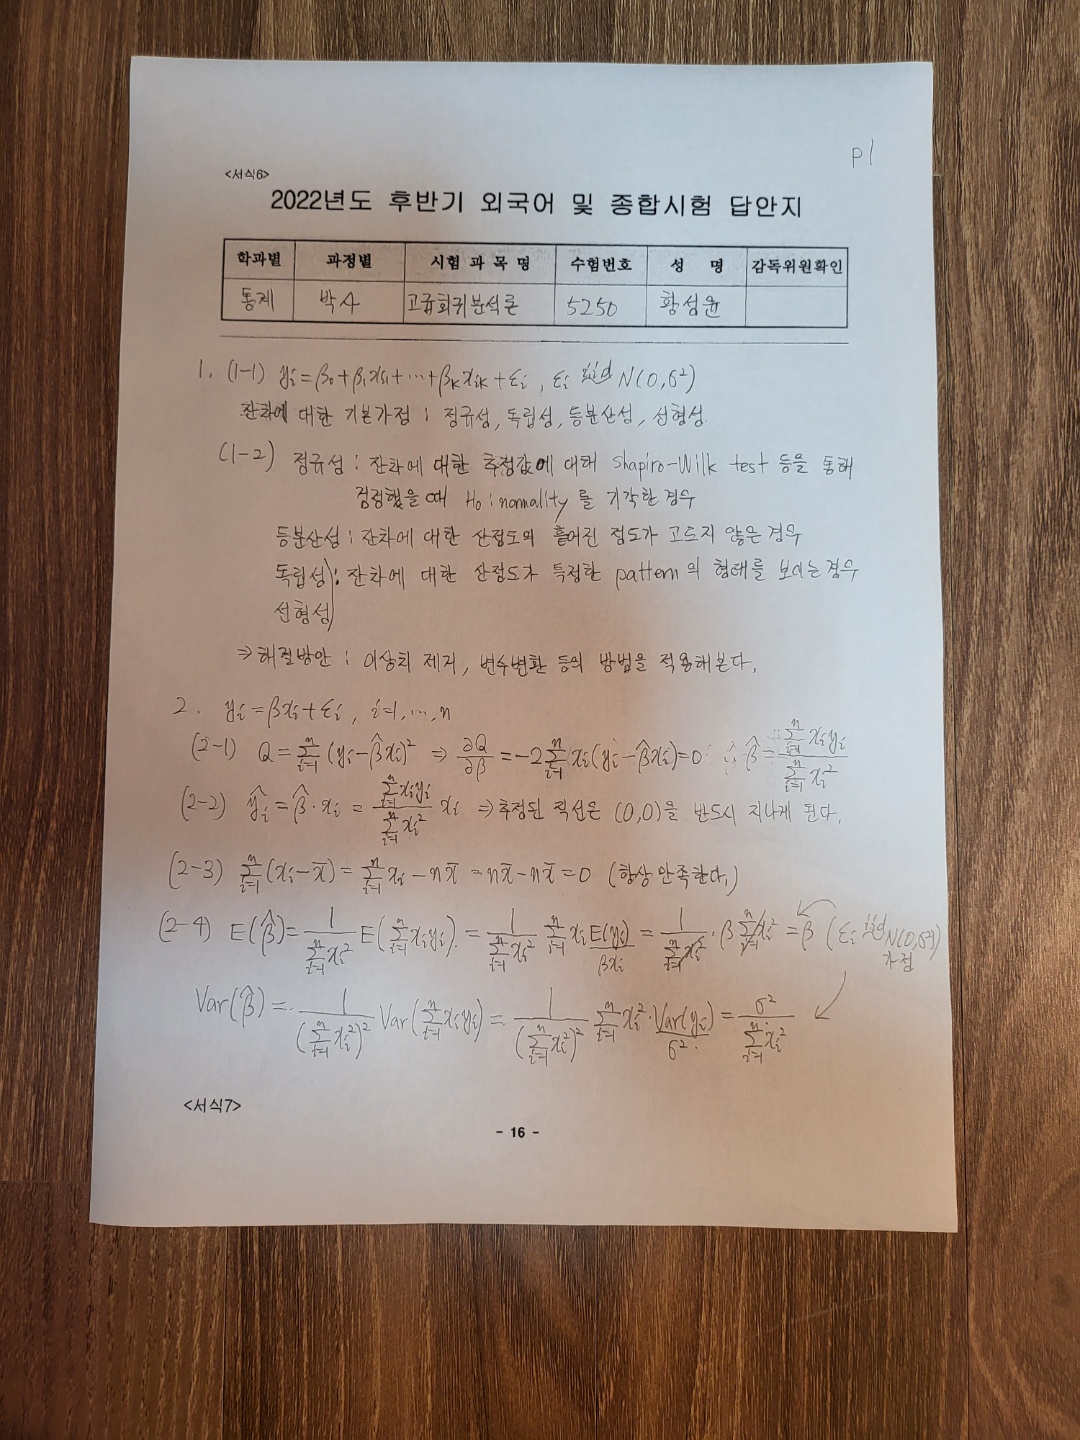 p1
<서식6>
2022년도 후반기 외국어 및 종합시험 답안지
학과별 과정별 시험 과 목 명 수험번호 성 명 감독위원확인
통계 박사 고급회귀분석론 5250 황성윤
1. (1-1) yᵢ = β₀+β₁xᵢ₁+⋯+βₖxᵢₖ+εᵢ , εᵢ iid N(0,σ²)
잔차에 대한 기본가정 : 정규성, 독립성, 등분산성, 선형성.
(1-2) 정규성 : 잔차에 대한 추정값에 대해 Shapiro-Wilk test 등을 통해
검정했을 때 H₀ : normality 를 기각한 경우
등분산성 : 잔차에 대한 산점도의 흩어진 정도가 고르지 않은 경우
독립성) : 잔차에 대한 산점도가 특정한 pattern 의 형태를 보이는 경우
선형성)
⇒ 해결방안 : 이상치 제거, 변수변환 등의 방법을 적용해본다.
2. yᵢ = βxᵢ+εᵢ , i=1,…,n
(2-1) Q = Σᵢ₌₁ⁿ (yᵢ-β̂xᵢ)² ⇒ ∂Q/∂β = -2Σᵢ₌₁ⁿ xᵢ(yᵢ-β̂xᵢ)=0 ∴ β̂ = Σᵢ₌₁ⁿ xᵢyᵢ / Σᵢ₌₁ⁿ xᵢ²
(2-2) ŷᵢ = β̂·xᵢ = (Σᵢ₌₁ⁿ xᵢyᵢ / Σᵢ₌₁ⁿ xᵢ²) xᵢ ⇒ 추정된 직선은 (0,0)을 반드시 지나게 된다.
(2-3) Σᵢ₌₁ⁿ (xᵢ-x̄) = Σᵢ₌₁ⁿ xᵢ - nx̄ = nx̄-nx̄ = 0 (항상 만족한다.)
(2-4) E(β̂) = 1/Σᵢ₌₁ⁿ xᵢ² E(Σᵢ₌₁ⁿ xᵢyᵢ) = 1/Σᵢ₌₁ⁿ xᵢ² Σᵢ₌₁ⁿ xᵢE(yᵢ) = 1/Σᵢ₌₁ⁿ xᵢ² · βΣᵢ₌₁ⁿ xᵢ² = β (εᵢ iid N(0,σ²)
βxᵢ 가정
Var(β̂) = 1/(Σᵢ₌₁ⁿ xᵢ²)² Var(Σᵢ₌₁ⁿ xᵢyᵢ) = 1/(Σᵢ₌₁ⁿ xᵢ²)² Σᵢ₌₁ⁿ xᵢ²·Var(yᵢ) = σ²/Σᵢ₌₁ⁿ xᵢ²
σ²
<서식7>
- 16 -